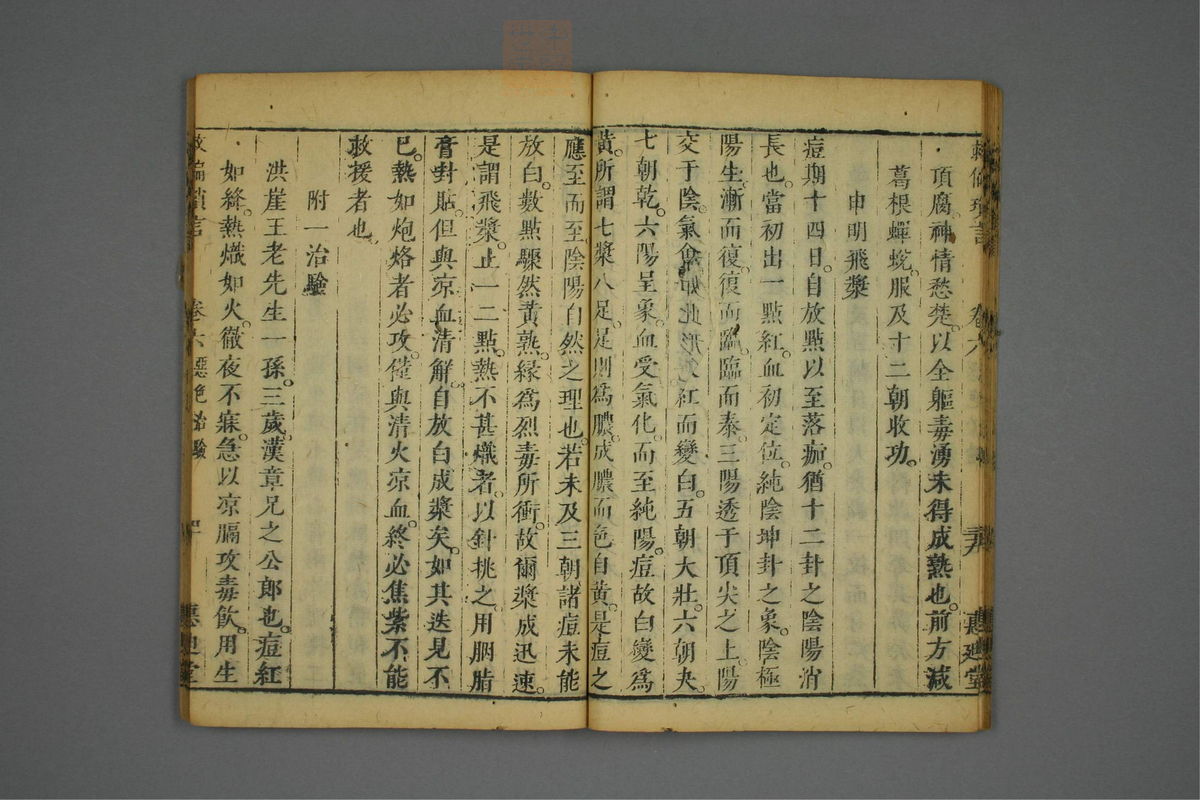 頂腐神情愁楚。以全軀毒湧未得成熟也。前方減
葛根蟬蛻。服及十二朝收功。
申明飛漿
痘期十四日。自放點以至落痂。猶十二卦之陰陽消
長也。當初出一點紅。血初定位。純陰坤卦之象。陰極
陽生。漸而復。復而臨。臨而泰。三陽透于頂尖之上。陽
交于陰。氣會如此形。紅而變白。五朝大壯。六朝夬。
七朝乾。六陽呈象。血受氣化。而至純陽。痘故白變爲
黃。所謂七漿八足。足則爲膿。成膿而色自黃。是痘之
應至而至。陰陽自然之理也。若未及三朝。諸痘未能
放白。數點驟然黃熟。緣爲烈毒所衝。故爾漿成迅速。
是謂飛漿。止一二點。熱不甚熾者。以針挑之。用胭脂
膏封貼。但與凉血清解。自放白成漿矣。如其迭見不
已。熱如炮烙者必攻。僅與清火凉血。終必焦紫不能
救援者也。
附一治驗
洪崖王老先生一孫。三歲。漢章兄之公郎也。痘紅
如絳。熱熾如火。徹夜不寐。急以凉膈攻毒飲。用生
救偏瑣言
卷六
惡絶治驗
惠迪堂